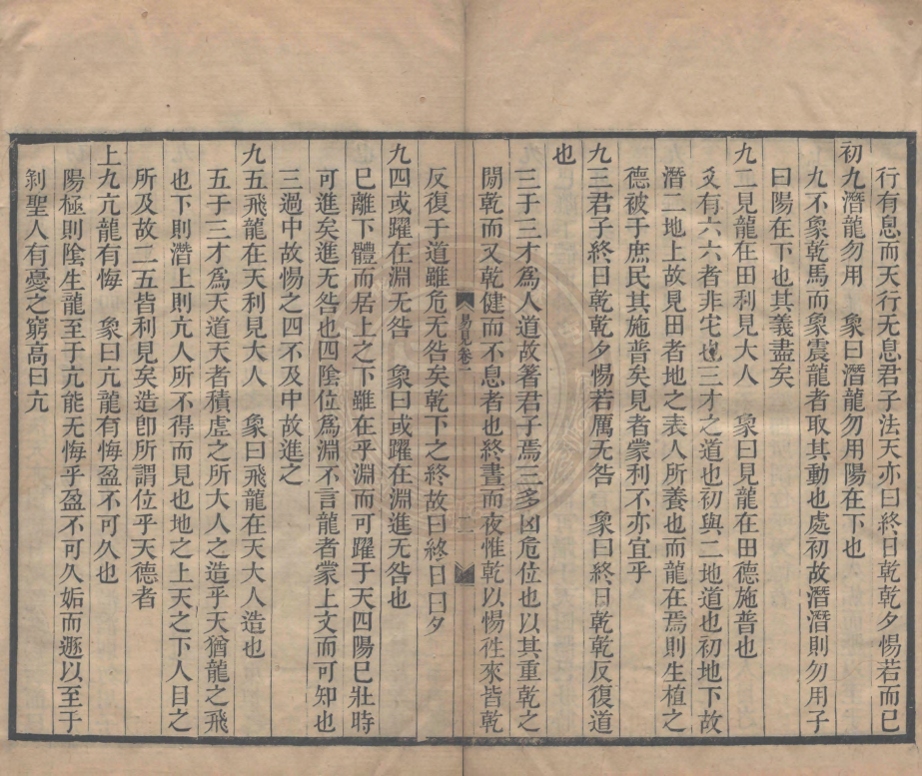 行有息而天行无息君子法天亦曰終日乾乾夕惕若而已
初九潛龍勿用　象曰潛龍勿用陽在下也
九不象乾馬而象震龍者取其動也處初故潛潛則勿用子
曰陽在下也其義盡矣
九二見龍在田利見大人　象曰見龍在田德施普也
爻有六六者非宅也三才之道也初與二地道也初地下故
潛二地上故見田者地之表人所養也而龍在焉則生植之
德被于庶民其施普矣見者蒙利不亦宜乎
九三君子終日乾乾夕惕若厲无咎　象曰終日乾乾反復道
也
三于三才爲人道故著君子焉三多凶危位也以其重乾之
閒乾而又乾健而不息者也終晝而夜惟乾以惕徃來皆乾
易見卷一
二
反復于道雖危无咎矣乾下之終故曰終日曰夕
九四或躍在淵无咎　象曰或躍在淵進无咎也
巳離下體而居上之下雖在乎淵而可躍于天四陽巳壯時
可進矣進无咎也四陰位爲淵不言龍者蒙上文而可知也
三過中故惕之四不及中故進之
九五飛龍在天利見大人　象曰飛龍在天大人造也
五于三才爲天道天者積虛之所大人之造乎天猶龍之飛
也下則潛上則亢人所不得而見也地之上天之下人目之
所及故二五皆利見矣造卽所謂位乎天德者
上九亢龍有悔　象曰亢龍有悔盈不可久也
陽極則陰生龍至于亢能无悔乎盈不可久姤而遯以至于
剝聖人有憂之窮高曰亢